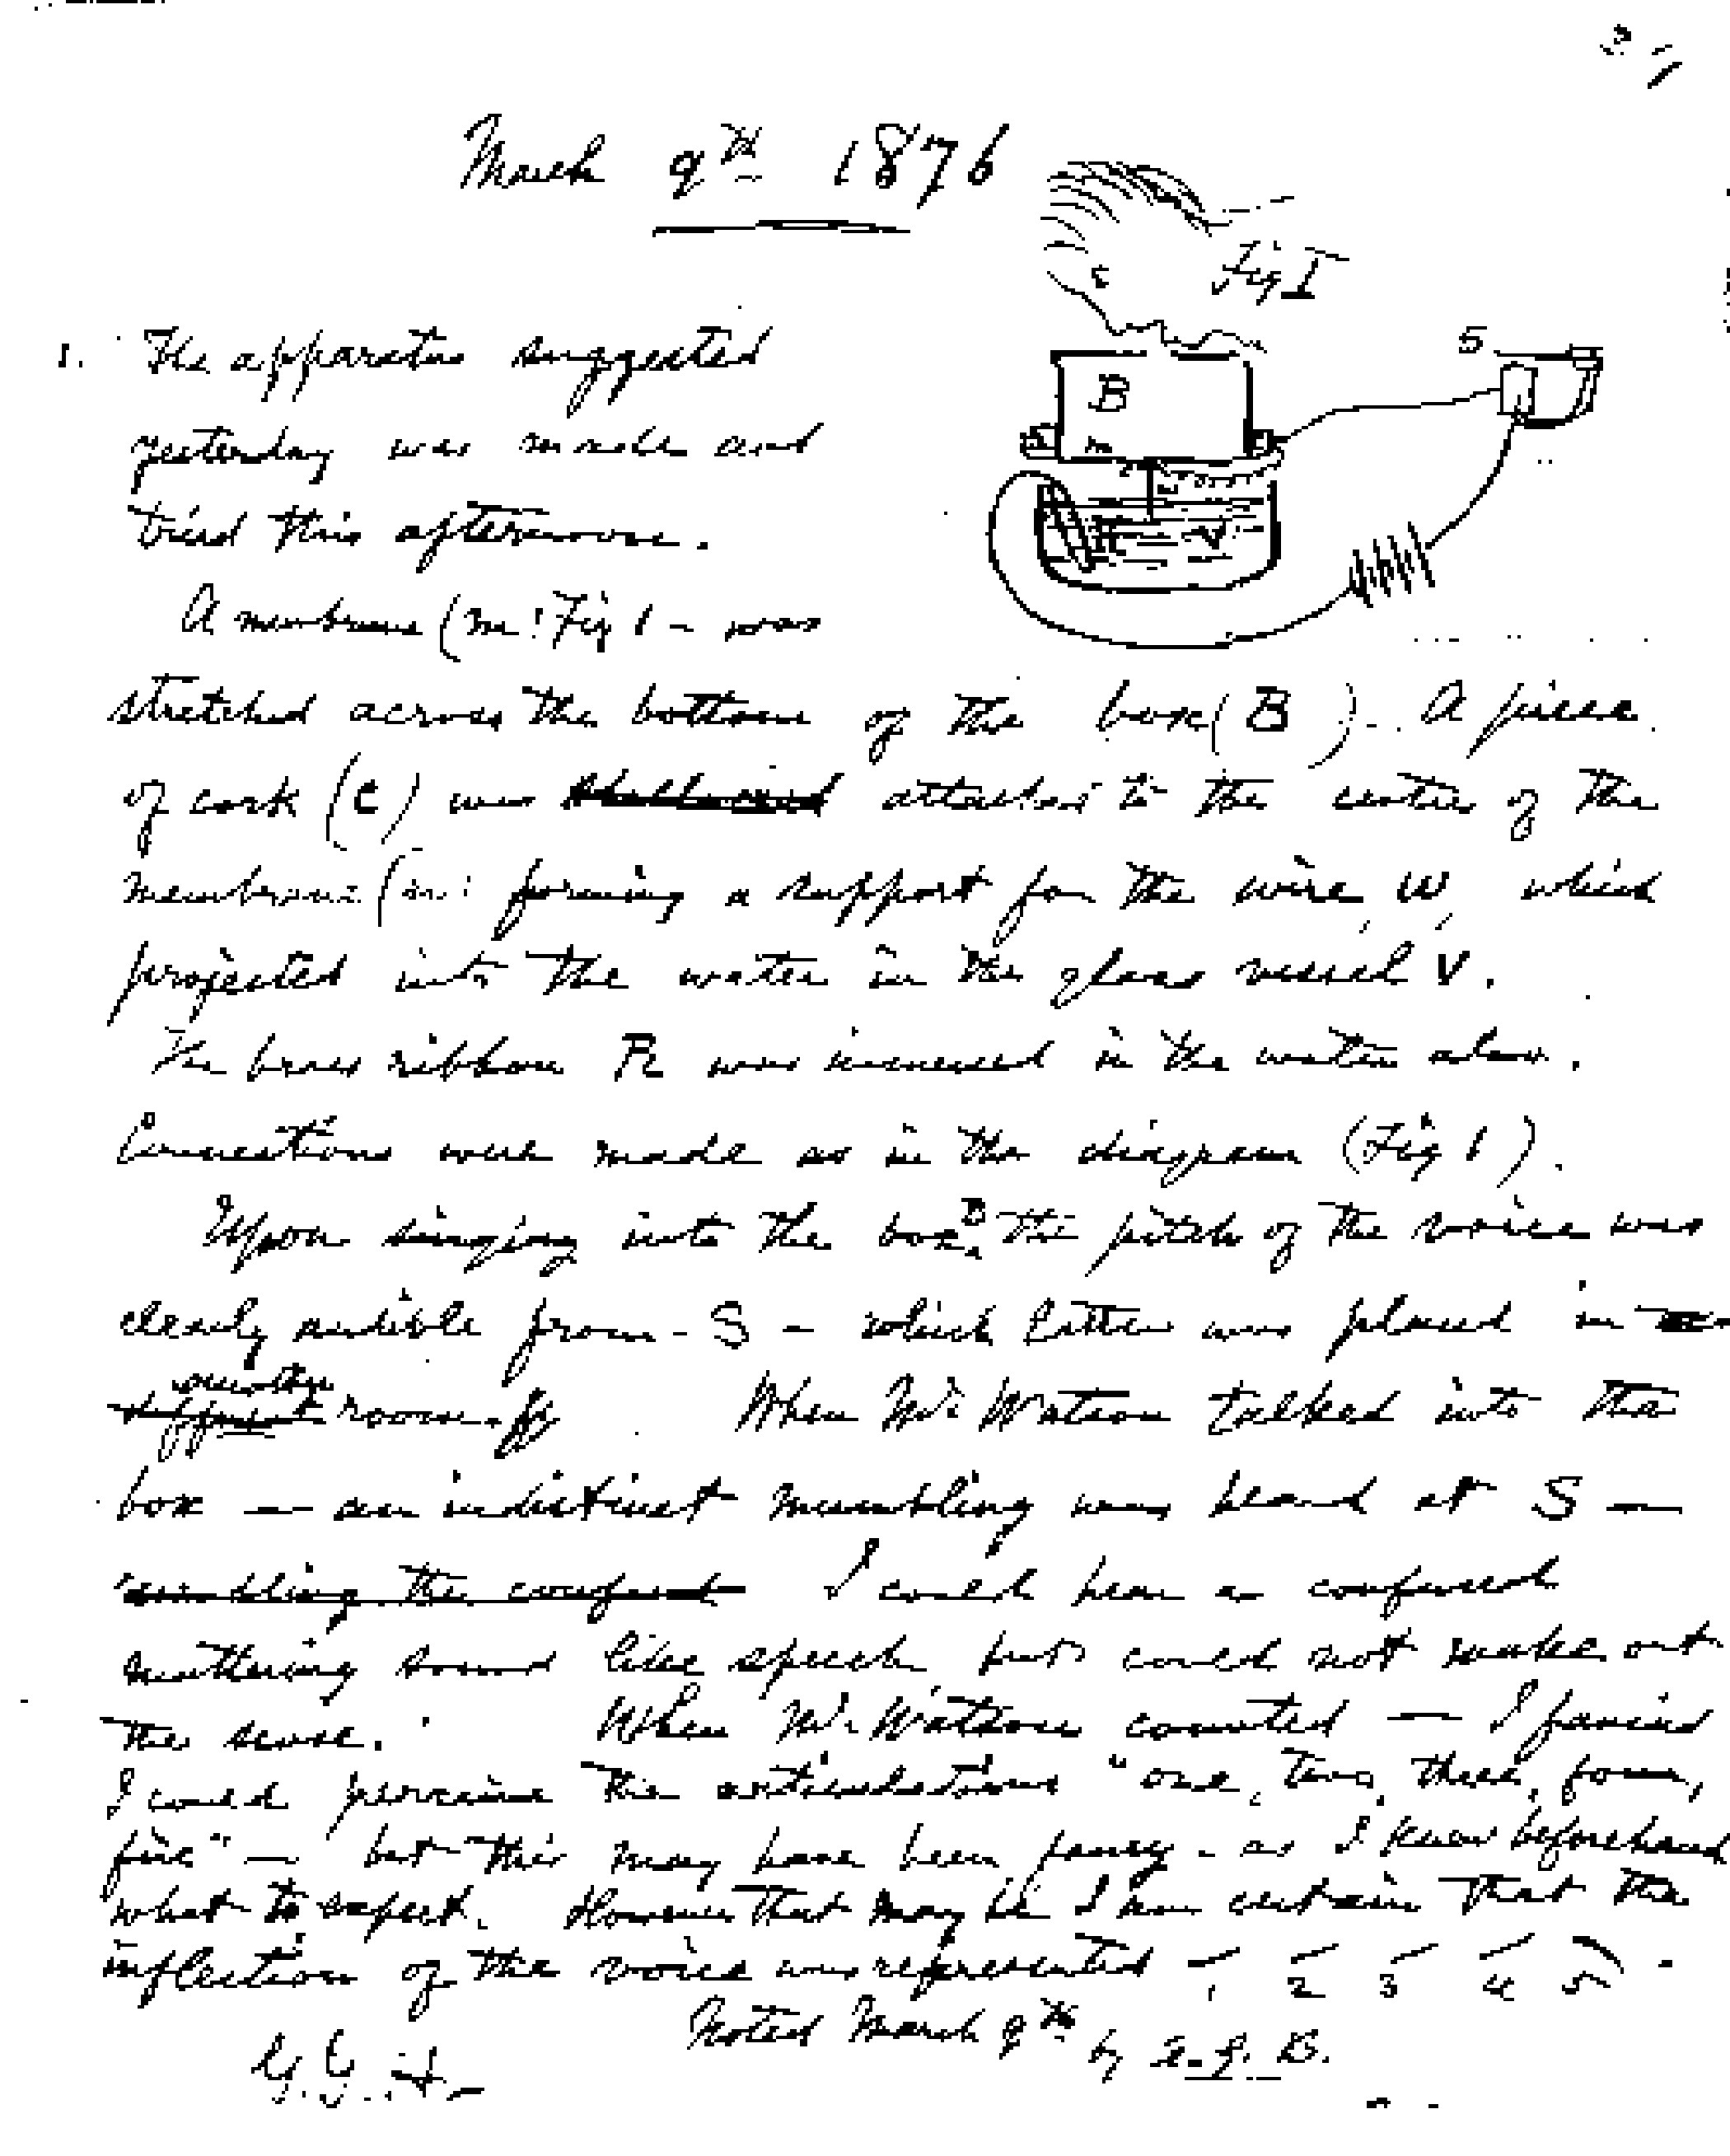 March 9th 1876
Fig I
1. The apparatus suggested
yesterday was made and
tried this afternoon.
A membrane (m: Fig 1 - was
stretched across the bottom of the box (B). A piece
of cork (c) was attached to the center of the
membrane (m: forming a support for the wire, W, which
projected into the water in the glass vessel V.
The brass ribbon R was immersed in the water also.
Connections were made as in the diagram (Fig 1).
Upon singing into the box B the pitch of the voice was
clearly audible from - S - which latter was placed in
another room.
When Mr. Watson talked into the
box — an indistinct mumbling was heard at S —
I could hear a confused
muttering sound like speech but could not make out
the sense. When Mr. Watson counted — I fancied
I could perceive the articulations "one, two, three, four,
five" — but this may have been fancy - as I knew beforehand
what to expect. However that may be I am certain that the
inflection of the voice was represented
1 2 3 4 5
Noted March 9th by
S
B
m
V